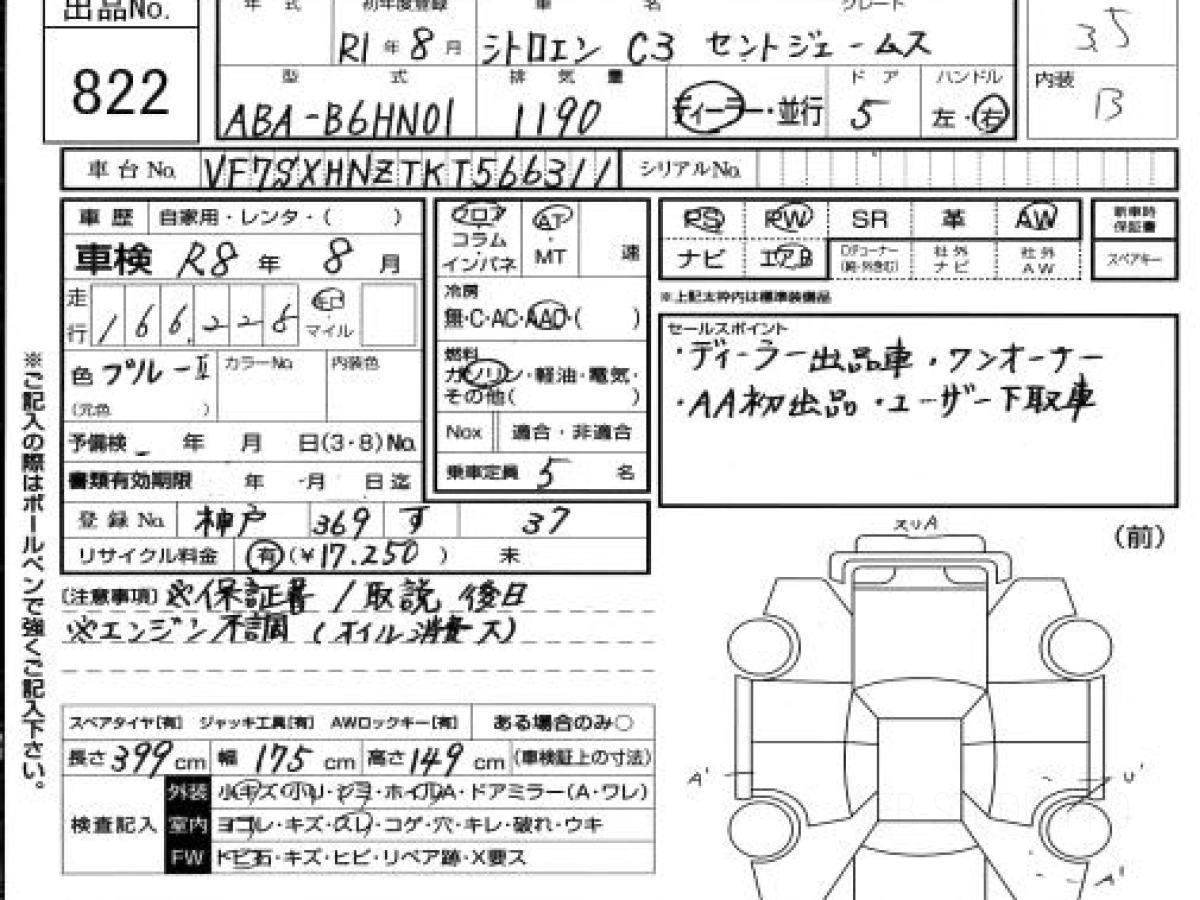 出品No.
822
年 式 初年度登録 車 名 グレード
R1年8月 シトロエン C3 セントジェームス
型 式 排 気 量 ド ア ハンドル
ABA-B6HN01 1190 ディーラー・並行 5 左・右
3.5
内装
B
車台No. VF7SXHNZTKT566311 シリアルNo.
車 歴 自家用・レンタ・( )
車検 R8 年 8 月
走行 166,228 キロ マイル
色 ブルーII カラーNo. 内装色
(元色 )
予備検 年 月 日(3・8)No.
書類有効期限 年 月 日迄
登録No. 神戸 369 す 37
リサイクル料金 有(¥17.250) 未
フロア
コラム
インパネ
AT
・
MT
速
冷房
無・C・AC・AAC・( )
燃料
ガソリン・軽油・電気・
その他( )
Nox 適合・非適合
乗車定員 5 名
PS PW SR 革 AW
ナビ エアB DFコーナー 社外ナビ 社外AW
新車時保証書
スペアキー
※上記太枠内は標準装備品
セールスポイント
・ディーラー出品車・ワンオーナー
・AA初出品・ユーザー下取車
〔注意事項〕※保証書/取説 後日
※エンジン不調(オイル消費大)
スペアタイヤ[有] ジャッキ工具[有] AWロックキー[有] ある場合のみ○
長さ399cm 幅 175 cm 高さ149cm (車検証上の寸法)
検査記入
外装 小キズ・小U・ヨゴレ・ホイルA・ドアミラー(A・ワレ)
室内 ヨゴレ・キズ・スレ・コゲ・穴・キレ・破れ・ウキ
FW トビ石・キズ・ヒビ・リペア跡・X要ス
※ご記入の際はボールペンで強くご記入下さい。
(前)
スリA
A'
U'
A'